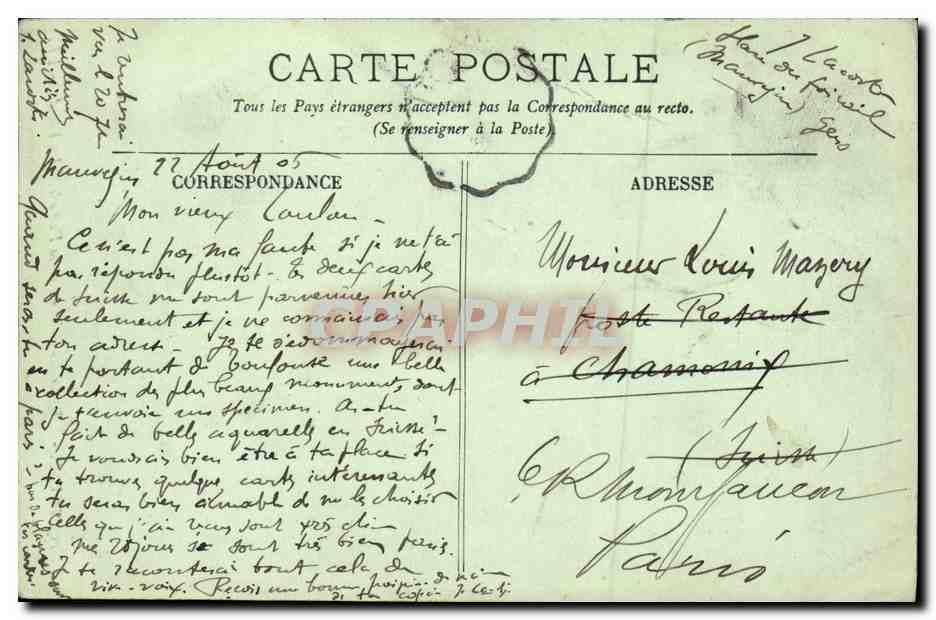 CARTE POSTALE
Tous les Pays étrangers n'acceptent pas la Correspondance au recto.
(Se renseigner à la Poste)
J Lacoste
(Mauvezin) Gers
Je rentrerai
vers le 20 7re
Meilleures
amitiés
J. Lacoste.
Mauvezin 22 Août 05
CORRESPONDANCE
Mon vieux
Ce n'est pas ma faute si je ne t'ai
pas répondu plustôt - tes deux cartes
de Suisse me sont parvenues hier
seulement et je ne connaissais pas
ton adresse - Je te dédommagerai
en te portant de Toulouse une belle
collection des plus beaux monuments dont
je t'envoie un spécimen. As-tu
fait de belles aquarelles en Suisse ?
Je voudrais bien être à ta place si
tu trouves quelque cartes intéressantes
tu seras bien aimable de me les choisir
celles que j'ai vues sont très chic
me se sont très bien
Je te raconterai tout cela de
vive-voix. Reçois une bonne poignée de main
de ton copin
Quand seras tu à paris ?
ADRESSE
Monsieur Louis Mazery
Poste Restante
à Chamonix
(Suisse)
6 R Montfaucon
Paris
CPAPHIL